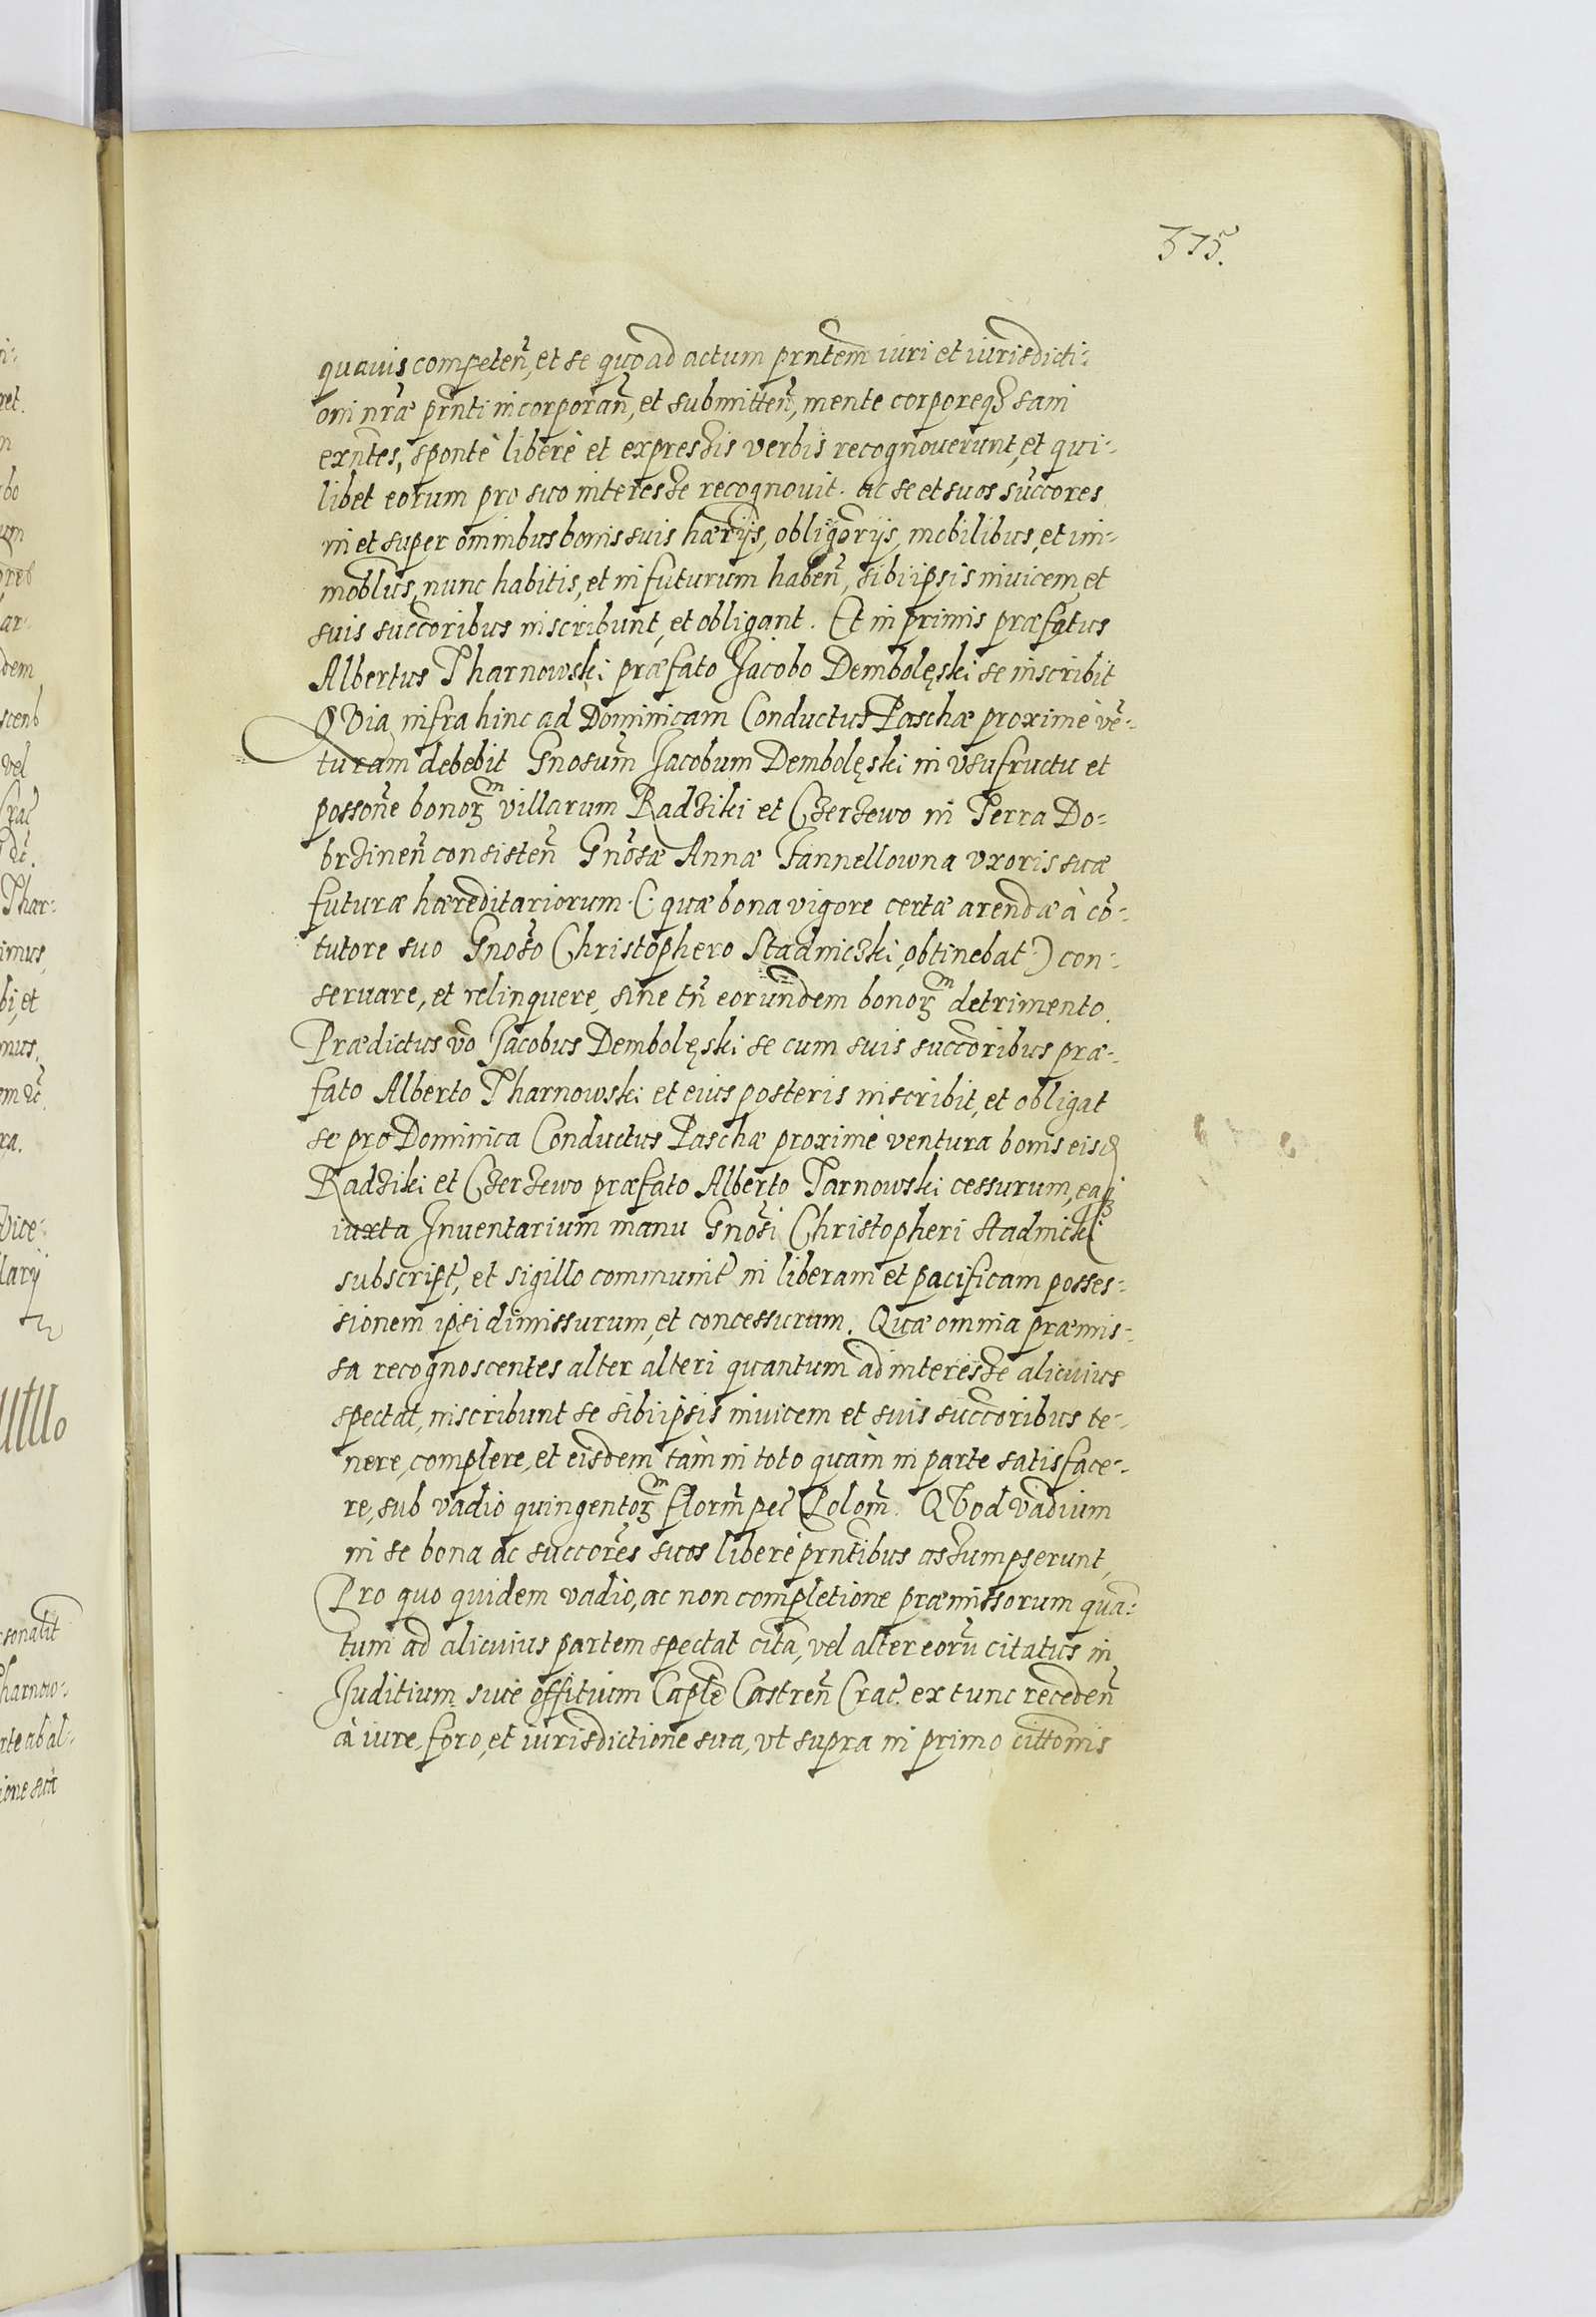 315.
quauis competen̄, et se quoad actum prntem iuri et iurisdicti-
oni nr̄æ prn̄ti incorporan̄, et submitten̄, mente corporeqȝ sani
exn̄tes, spontè liberè et expressis verbis recognouerunt, et qui-
libet eorum pro suo interesse recognouit. ac se et suos succores
in et super omnibus bonis suis hærȳs, obligorijs, mobilibus, et im-
moblus, nunc habitis, et in futurum haben̄, sibi ipsis inuicem, et
suis succoribus inscribunt, et obligant. Et in primis præfatus
Albertus Tharnowski præfato Jacobo Dembolęski se inscribit
QVia infra hinc ad Dominicam Conductus Paschæ proximè vē-
turam debebit Gnosum̄ Jacobum Dembolęski in vsufructu et
posson̄e bonoꝝm villarum Radziki et Czerzewo in Terra Do-
brzinen̄ consisten̄ Gnōsæ Annæ Jannellowna vxoris suæ
futuræ hæreditariorum (: quæ bona vigore certæ arendæ à cō-
tutore suo Gnōso Christophero Stadniczki obtinebat :) con-
seruare, et relinquere, sine tn̄ eorundem bonoꝝm detrimento.
Prædictus vō Jacobus Dembolęski se cum suis succoribus præ-
fato Alberto Tharnowski et eius posteris inscribit, et obligat
se pro Dominica Conductus Paschæ proximè ventura bonis eisd
Radziki et Czerzewo præfato Alberto Tarnowski cessurum, eaqȝ
iuxta Inuentarium manu Gnōsi Christopheri Stadnicki
subscript̄, et sigillo communit̄ in liberam et pacificam posses-
sionem ipsi dimissurum, et concessurum. Quæ omnia præmis-
sa recognoscentes alter alteri quantum ad interesse alicuius
spectat, inscribunt se sibi ipsis inuicem et suis succoribus te-
nere, complere, et eisdem tàm in toto quàm in parte satisface-
re, sub vadio quingentoꝝm florm̄ pec̄ Polom̄. QVod vadium
in se bona ac succores suos liberè prntibus assumpserunt,
Pro quo quidem vadio, ac non completione præmissorum quā-
tum ad alicuius partem spectat cita, vel alter eorū citatus in
Juditium siue offitium Caple Castren̄ Crac̄. ex tunc receden̄
à iure, foro, et iurisdictione sua, vt supra in primo cittonis